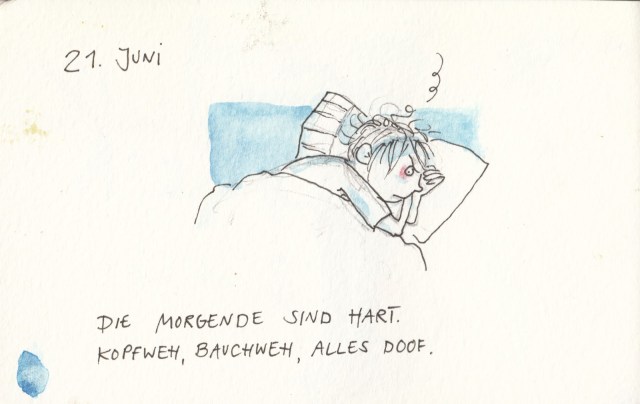 21. JUNI
DIE MORGENDE SIND HART.
KOPFWEH, BAUCHWEH, ALLES DOOF.